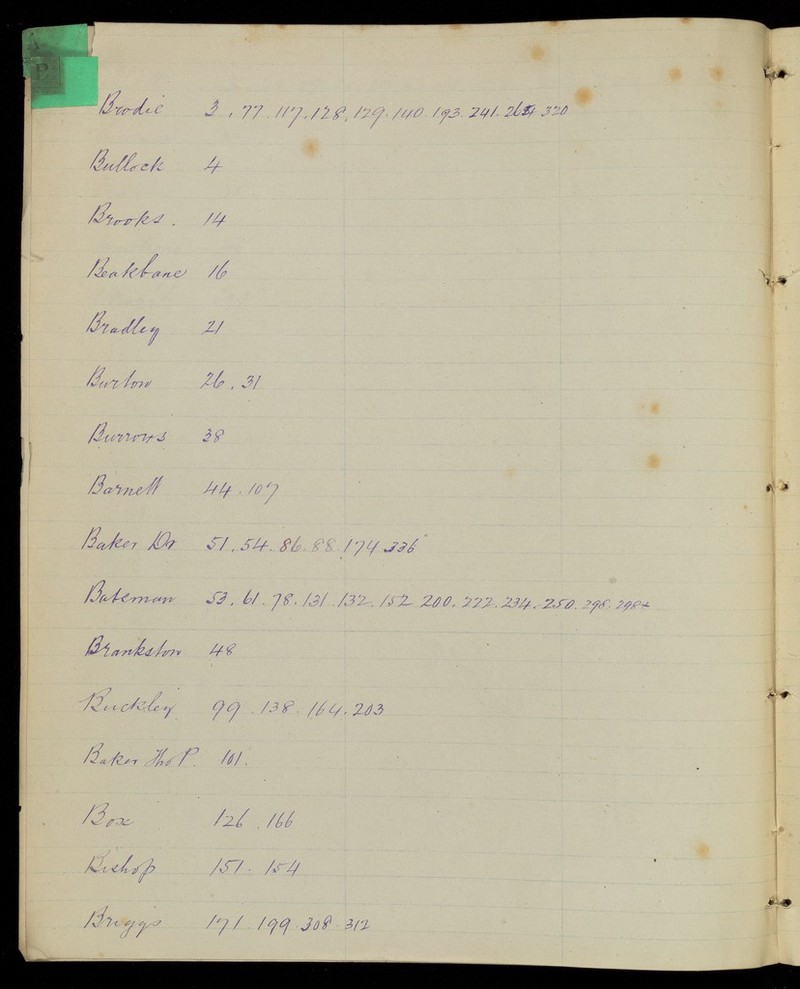 Brodie 3. 77. 117. 128. 129. 140. 193. 241. 264. 320
Bullock 4
Brooks. 14
Beakbane 16
Bradley 21
Burton 26. 31
Burrows 38
Barnett 44. 107
Baker Dr 51. 54. 86. 88. 174. 336
Bateman 53. 61. 78. 131. 132. 152. 200. 222. 234. 250. 298. 298+
Brankston 48
Buckley 99. 138. 164. 203
Baker Tho P. 101.
Box 126. 166
Bishop 151. 154
Briggs 171. 199. 308. 312